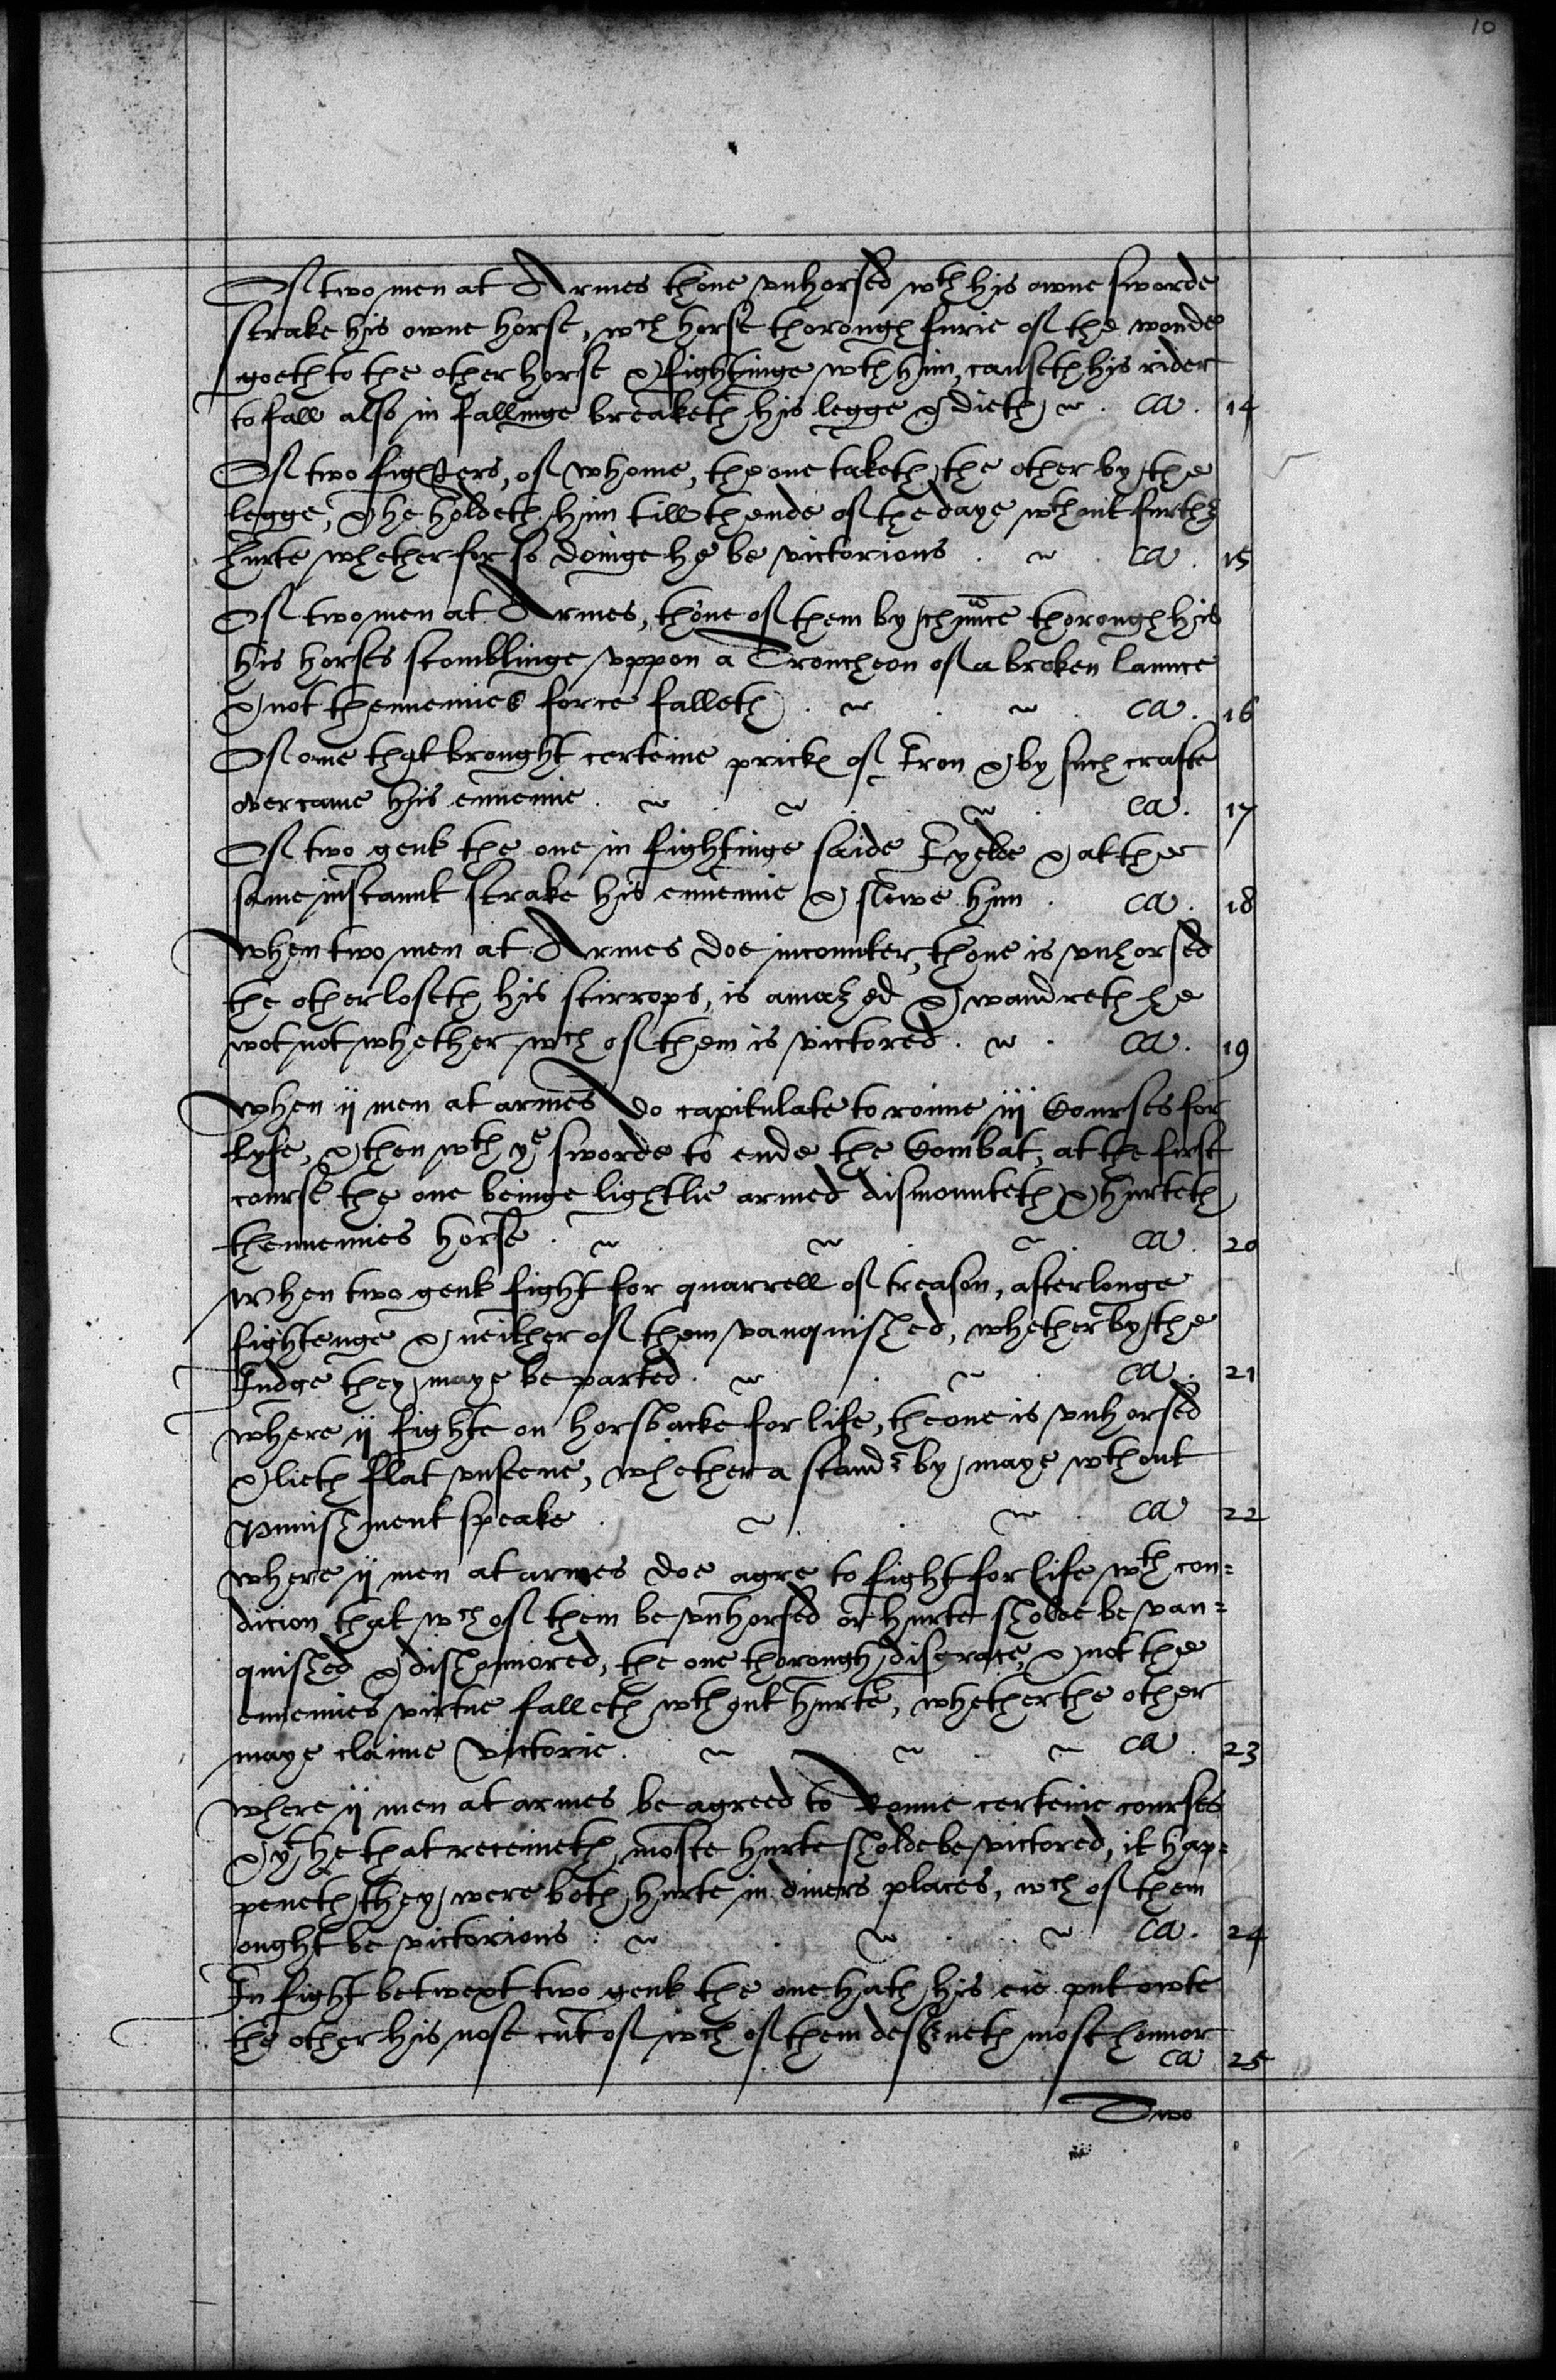 10
Of two men at Armes thone vnhorsed wth his owne sworde
strake his owne horse, wch horse thorough furie of the wonde
goeth to the other horse & fightinge wth him, causeth his rider
to fall also in fallinge breaketh his legge & dieth ca. 14
Of two fighters, of whome, the one taketh the other by the
legge, & he holdeth him till thende of the daye wthout further
hurte whether for so doinge he be victorious ca. 15
Of two men at Armes, thone of them by chaunce thorough his
his horses stomblinge vppon a Troncheon of a broken launce
& not thennemies force falleth ca. 16
Of one that brought certeine pricks of Iron & by such crafte
overcame his ennemie ca. 17
Of two gent the one in fightinge saide I yelde & at the
same instannt strake his ennemie & slewe him ca. 18
When two men at Armes doe incounter, thone is vnhorsed
the other loseth his stirrops, is amazed & wandreth he
wot not whether wch of them is victored. ca. 19
When ij men at armes do capitulate to ronne iij Courses for
lyfe, & then wth ye sworde to ende the Combat, at the first
course the one beinge lightlie armed dismounteth & hurteth
thennemies horse. ca. 20
When two gent fight for quarrell of treason, after longe
fightenge & neither of them vanquished, whether by the
Iudge they maye be parted. ca. 21
where ij fighte on horsbacke for life, the one is vnhorsed
& lieth flat vnseene, whether a stander by maye wthout
punishment speake. ca 22
where ij men at armes doe agre to fight for life wth con=
dicion that wch of them be vnhorsed or hurte sholde be van=
quished & dishonnored, the one thorough disgrace, & not the
ennemies virtue falleth wthout hurte, whether the other
maye claime victorie. ca. 23
where ij men at armes be agreed to Ronne certeine courses
& yt he that receiueth moste hurte sholde be victored, it hap=
peneth they were both hurte in diuers places, wch of them
ought be victorious ca. 24
In fight betwext two gent the one hath his eie put owte
the other his nose cut of wch of them deserueth most honnor
ca 25
Two